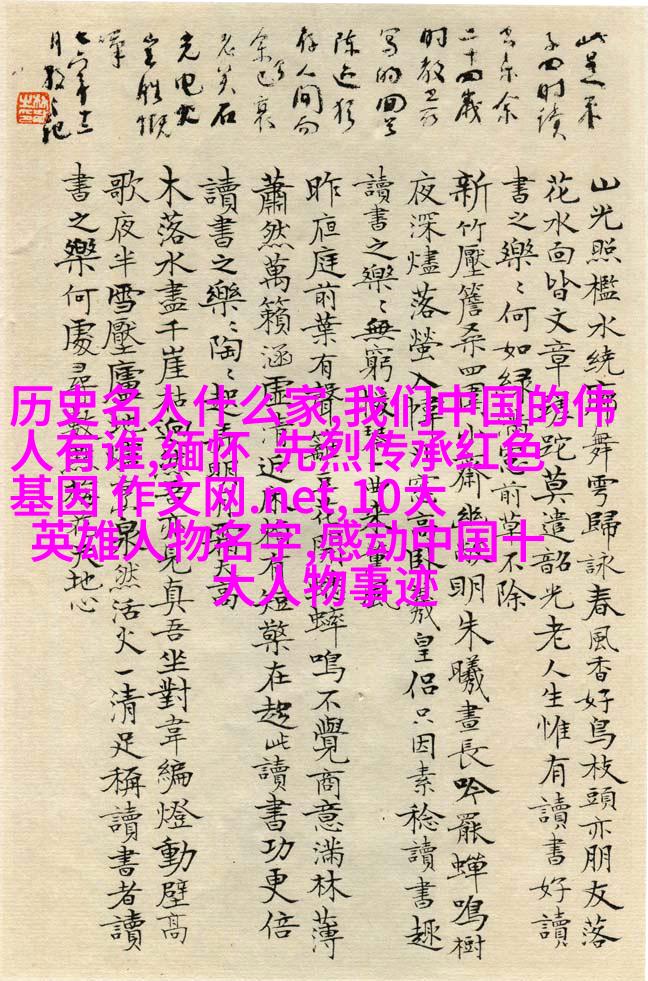 此是朱
子四时读
书乐余
二十四岁
时教
写的回
陈迹犹
存人间而
余已衰
老矣石
光电火
岂胜慨
嘆
七六年十二
月敬之記
山光照檻水繞廊舞雩歸詠春風香好鳥枝頭亦朋友落
花水面皆文章蹉跎莫遣韶光老人生惟有讀書好讀
書之樂〻何如綠滿窓前草不除
新竹壓簷桑四圍小齋幽敞明朱曦晝長吟罷蟬鳴樹
夜深燼落螢入幃北窓高臥羲皇侶只因素稔讀書趣
讀書之樂〻無窮瑤琴一曲來薰風
昨夜庭前葉有聲籬豆花開蟋蟀鳴不覺商意滿林薄
蕭然萬籟涵虛清近床賴有短檠在趁此讀書功更倍
讀書之樂〻陶〻起弄明月霜天高
木落水盡千崖枯迥然吾亦見真吾坐對韋編燈動壁高
歌夜半雪壓廬地泉然活火一清足稱讀書者讀
書之樂何處尋數點梅花天地心
历史名人什么家,我们中国的伟
人有谁,缅怀 先烈传承红色
基因 作文网.net,10大
英雄人物名字,感动中国十
大人物事迹